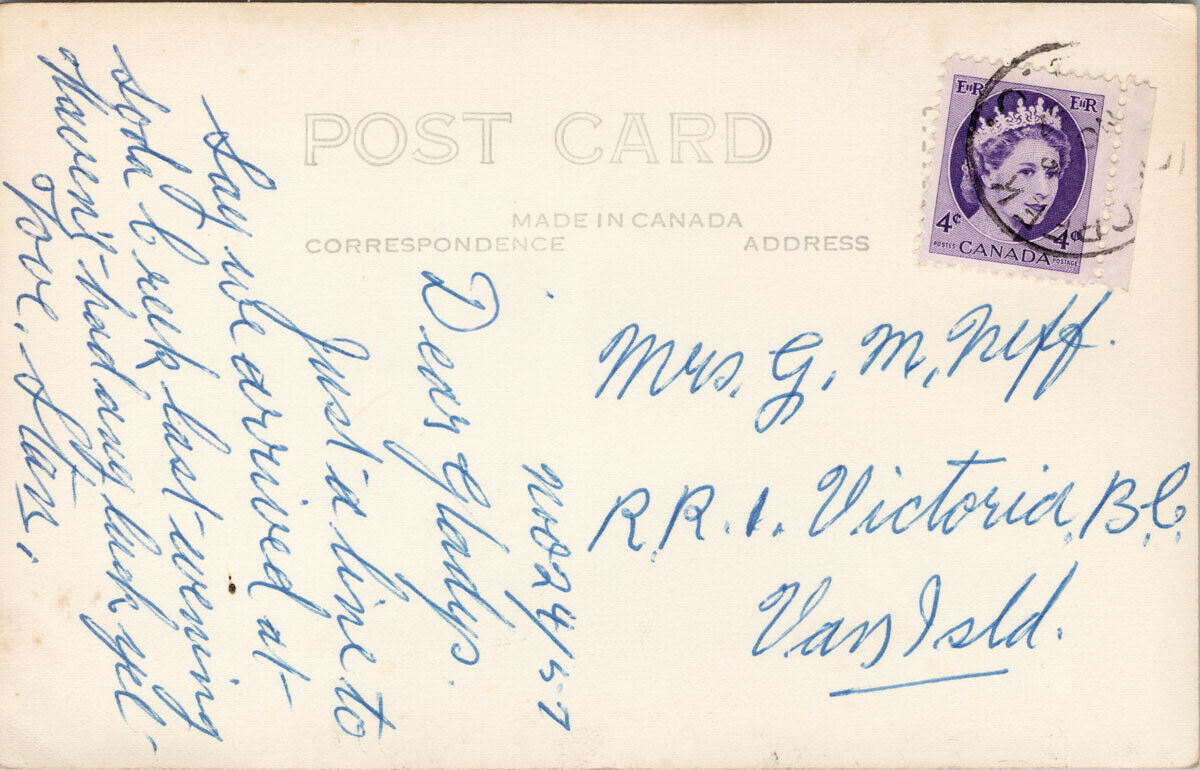 POST CARD
MADE IN CANADA
CORRESPONDENCE
ADDRESS
EIIR
EIIR
4¢
4¢
POSTES CANADA POSTAGE
Nov 24/57
Dear Gladys.
Just a line to
say we arrived at
Soda Creek last evening
Haven't had any luck yet.
Love, Stan.
Mrs. G. M. Neff.
R.R.1. Victoria, B.C.
Van Isld.